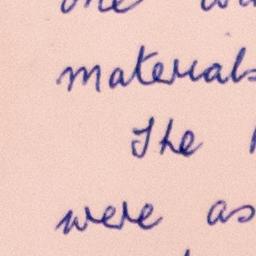 materials
The
were as